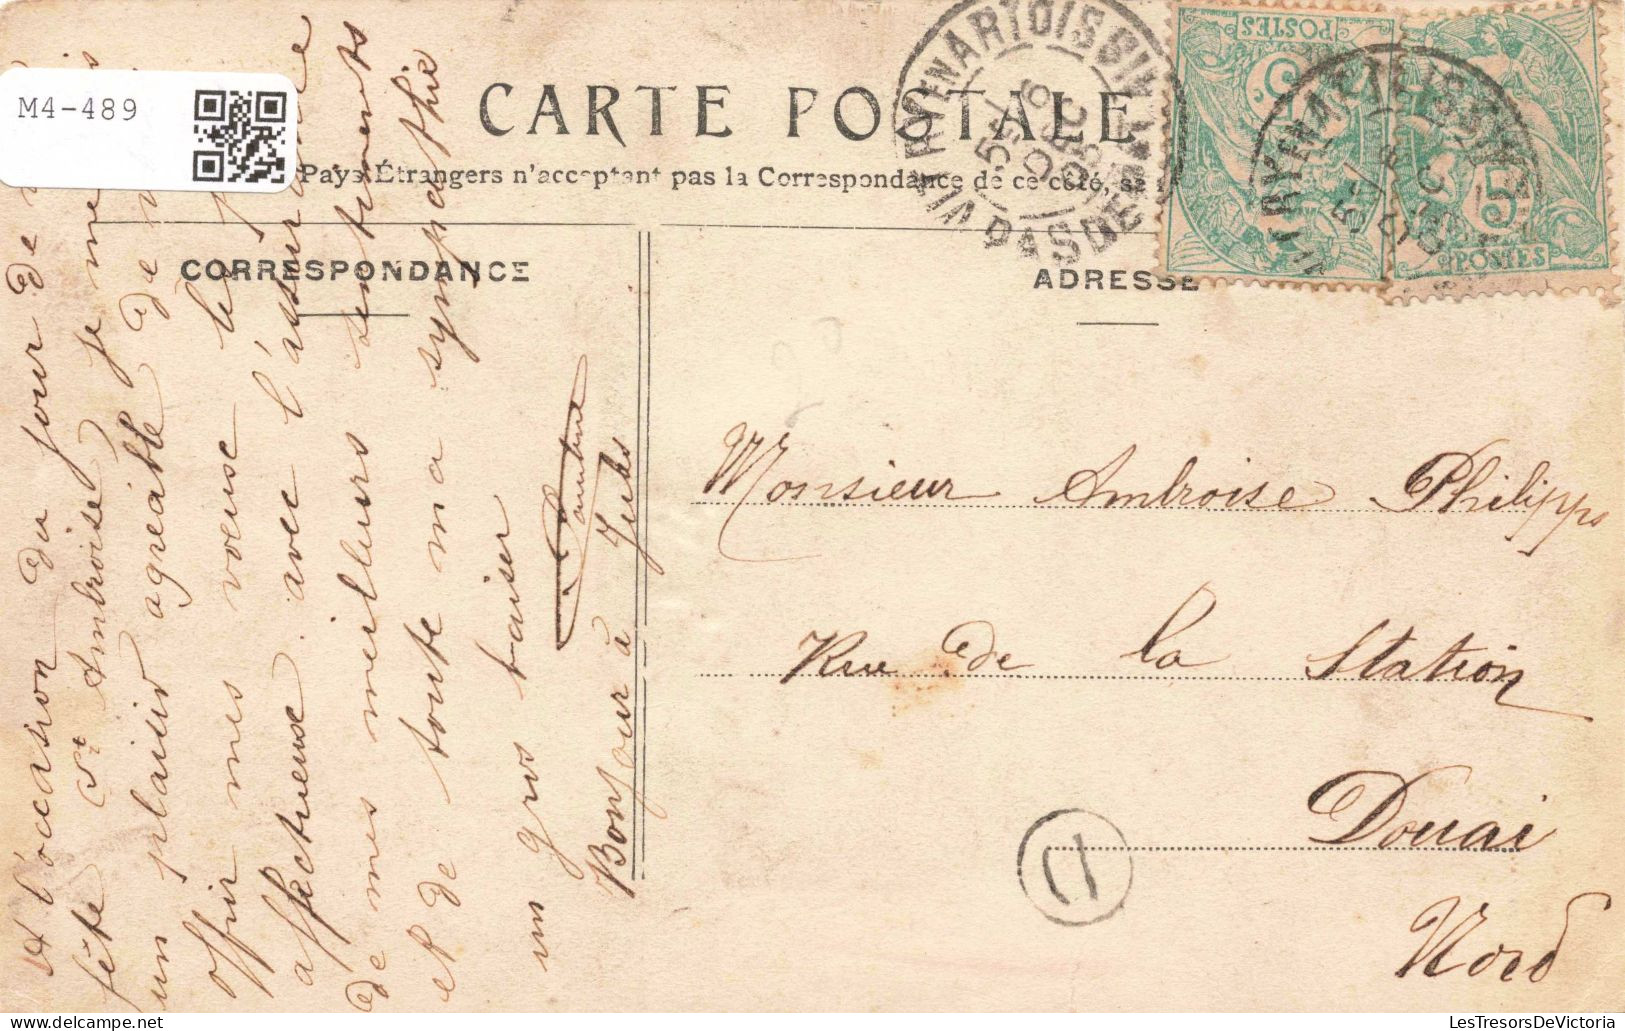 M4-489
CARTE POSTALE
Pays Étrangers n'acceptant pas la Correspondance de ce côté, se
CORRESPONDANCE
ADRESSE
A l'occasion du jour de
fête St Ambroise je me
un plaisir agréable de
offrir mes voeux les
affectueuse avec l'assurance
de mes meilleurs sentiments
et de toute ma sympathie
un gros baiser
Bonjour à Jules
Monsieur Ambroise Philipps
Rue de la Station
Douai
Nord
VITRY EN ARTOIS
PAS DE
POSTES
5
VITRY EN ARTOIS
5
POSTES
LesTresorsDeVictoria